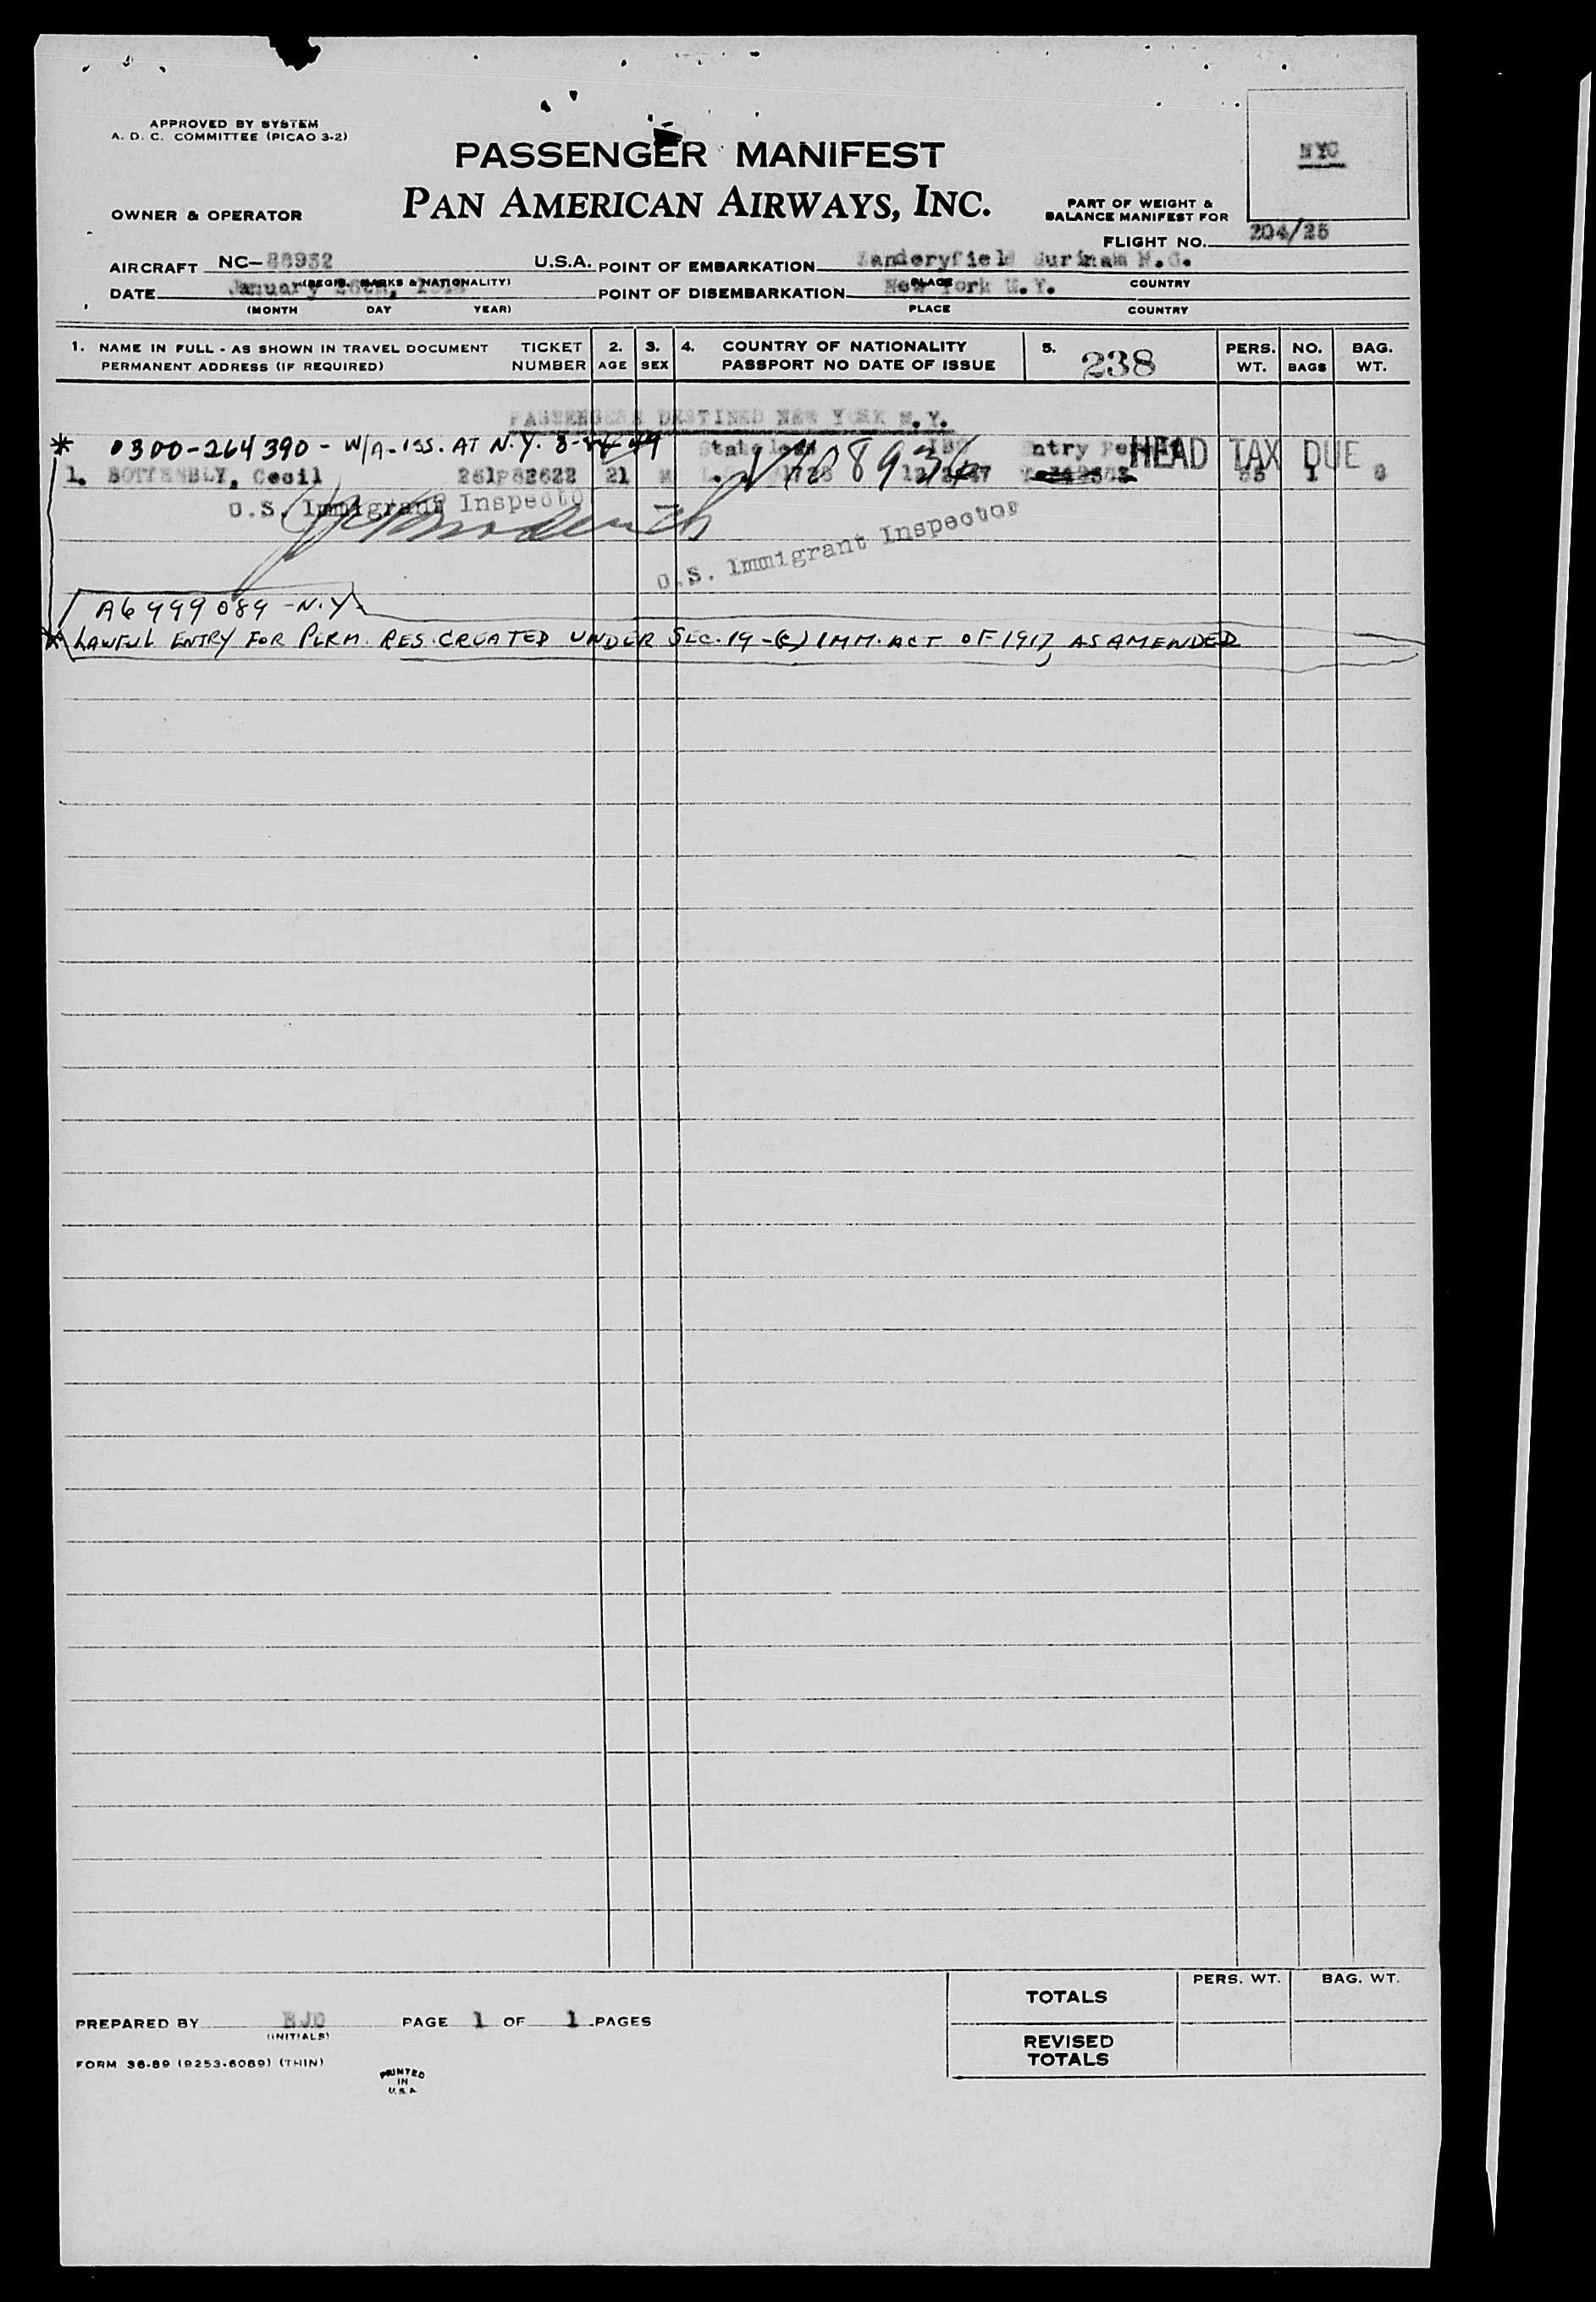 APPROVED BY SYSTEM
A. D. C. COMMITTEE (PICAO 3-2)
PASSENGER MANIFEST
NYC
OWNER & OPERATOR
PAN AMERICAN AIRWAYS, INC.
PART OF WEIGHT &
BALANCE MANIFEST FOR
FLIGHT NO. 204/25
AIRCRAFT NC-88952 U.S.A. POINT OF EMBARKATION Zanderyfield Surinam N.G.
(REGIS. MARKS & NATIONALITY) PLACE COUNTRY
DATE January POINT OF DISEMBARKATION New York N.Y.
(MONTH DAY YEAR) PLACE COUNTRY
1. NAME IN FULL - AS SHOWN IN TRAVEL DOCUMENT TICKET 2. 3. 4. COUNTRY OF NATIONALITY 5. 238 PERS. NO. BAG.
PERMANENT ADDRESS (IF REQUIRED) NUMBER AGE SEX PASSPORT NO DATE OF ISSUE WT. BAGS WT.
PASSENGERS DESTINED NEW YORK N.Y.
* 0300-264390 - W/A-ISS. AT N.Y. Stateless Entry HEAD TAX DUE
1. Cecil 261P82622 21 M V1089 1
U.S. Immigrant Inspector
U.S. Immigrant Inspector
A6 999 089 - N.Y.
* LAWFUL ENTRY FOR PERM. RES. CREATED UNDER SEC. 19-(c) IMM. ACT OF 1917, AS AMENDED
PERS. WT. BAG. WT.
TOTALS
PREPARED BY PAGE 1 OF 1 PAGES
(INITIALS)
REVISED
TOTALS
FORM 36-89 (9253-6089) (THIN)
PRINTED
IN
U.S.A.